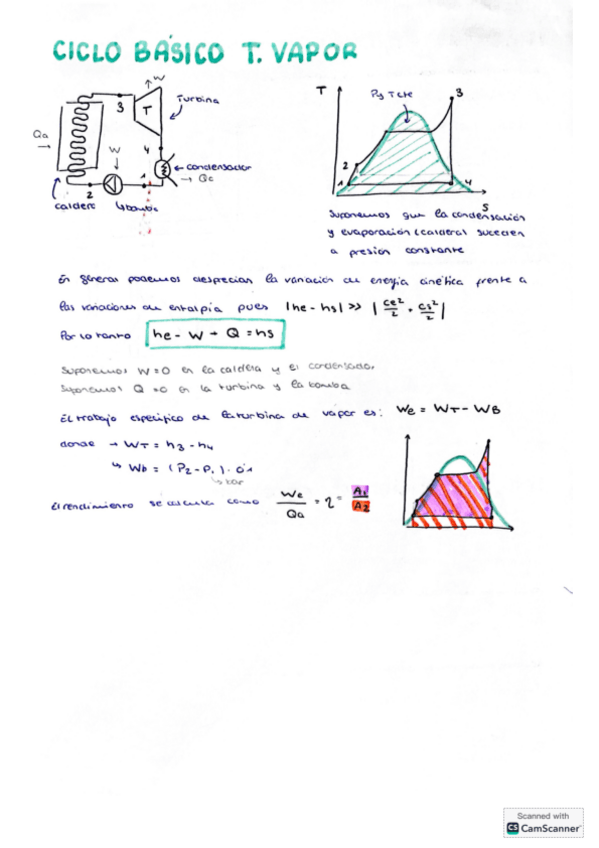 CICLO BÁSICO T. VAPOR
W
3
T
Turbina
Qa
W
4
condensador
Qc
1
2
caldera
bomba
T
P y T cte
3
2
1
4
S
Suponemos que la condensación
y evaporación (caldera) suceden
a presión constante
En general podemos despreciar la variación de energía cinética frente a
las variaciones de entalpía pues |he - hs| >> | ce²/2 + cs²/2 |
Por lo tanto he - W + Q = hs
Suponemos W=0 en la caldera y el condensador
Suponemos Q=0 en la turbina y la bomba
El trabajo específico de la turbina de vapor es: We = WT - WB
donde → WT = h3 - h4
↳ Wb = (P2 - P1) · 0'1
↳ bar
El rendimiento se calcula como We/Qa = η = A1/A2
Scanned with
CS CamScanner